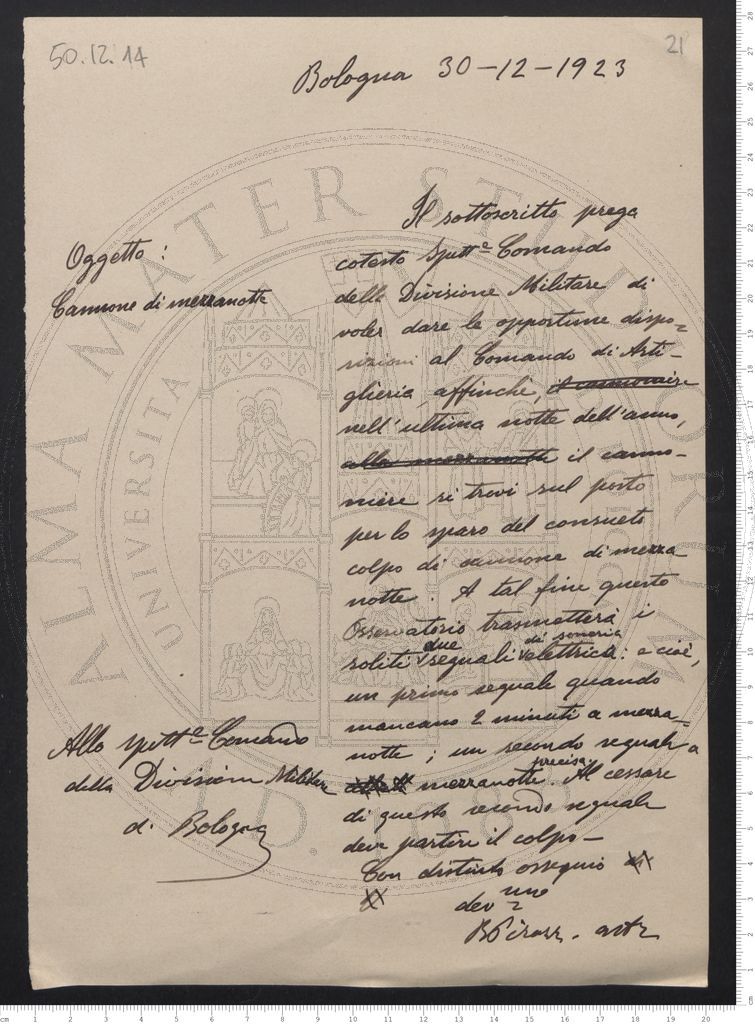 50.12.14
21
Bologna 30-12-1923
Oggetto:
Cannone di mezzanotte
Il sottoscritto prega
cotesto Spettᵉ Comando
della Divisione Militare di
voler dare le opportune dispo-
sizioni al Comando di Arti-
glieria affinchè, il cannoniere
nell'ultima notte dell'anno,
alla mezzanotte il canno-
niere si trovi sul posto
per lo sparo del consueto
colpo di cannone di mezza
notte. A tal fine questo
Osservatorio trasmetterà i
soliti due segnali di soneria elettrica: e cioè,
un primo segnale quando
mancano 2 minuti a mezza-
notte; un secondo segnale a
mezzanotte precisa. Al cessare
di questo secondo segnale
deve partire il colpo-
Con distinto ossequio
dev.mo
Allo Spettᵉ Comando
della Divisione Militare
di Bologna
ALMA MATER STUDIORUM
UNIVERSITA
A.D. 1088